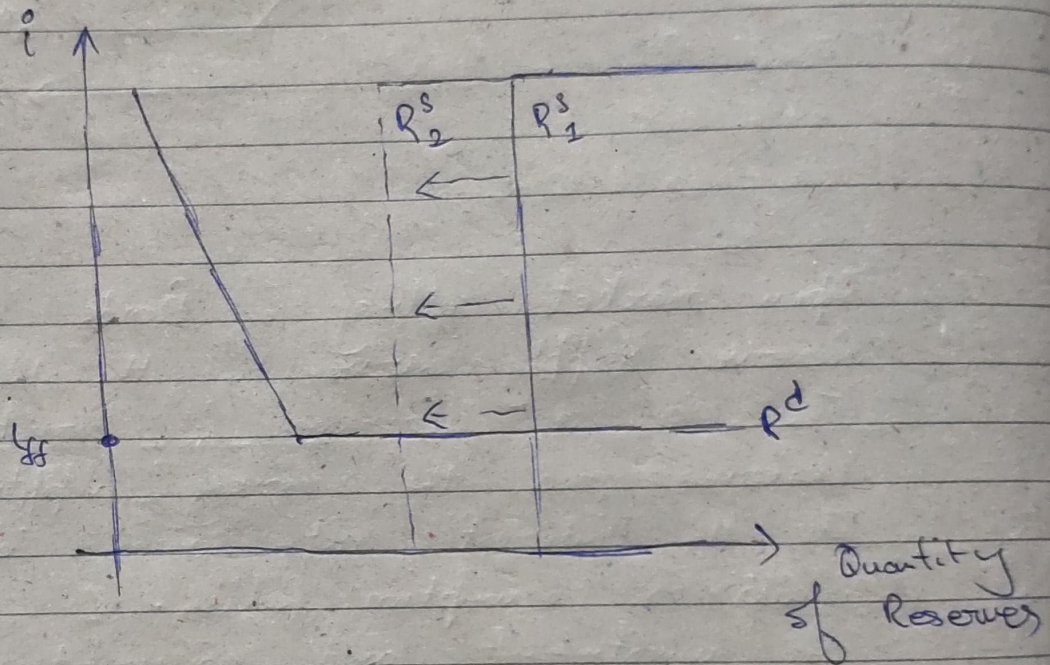 i
R₂ˢ
R₁ˢ
i_ff
Rᵈ
Quantity
of Reserves